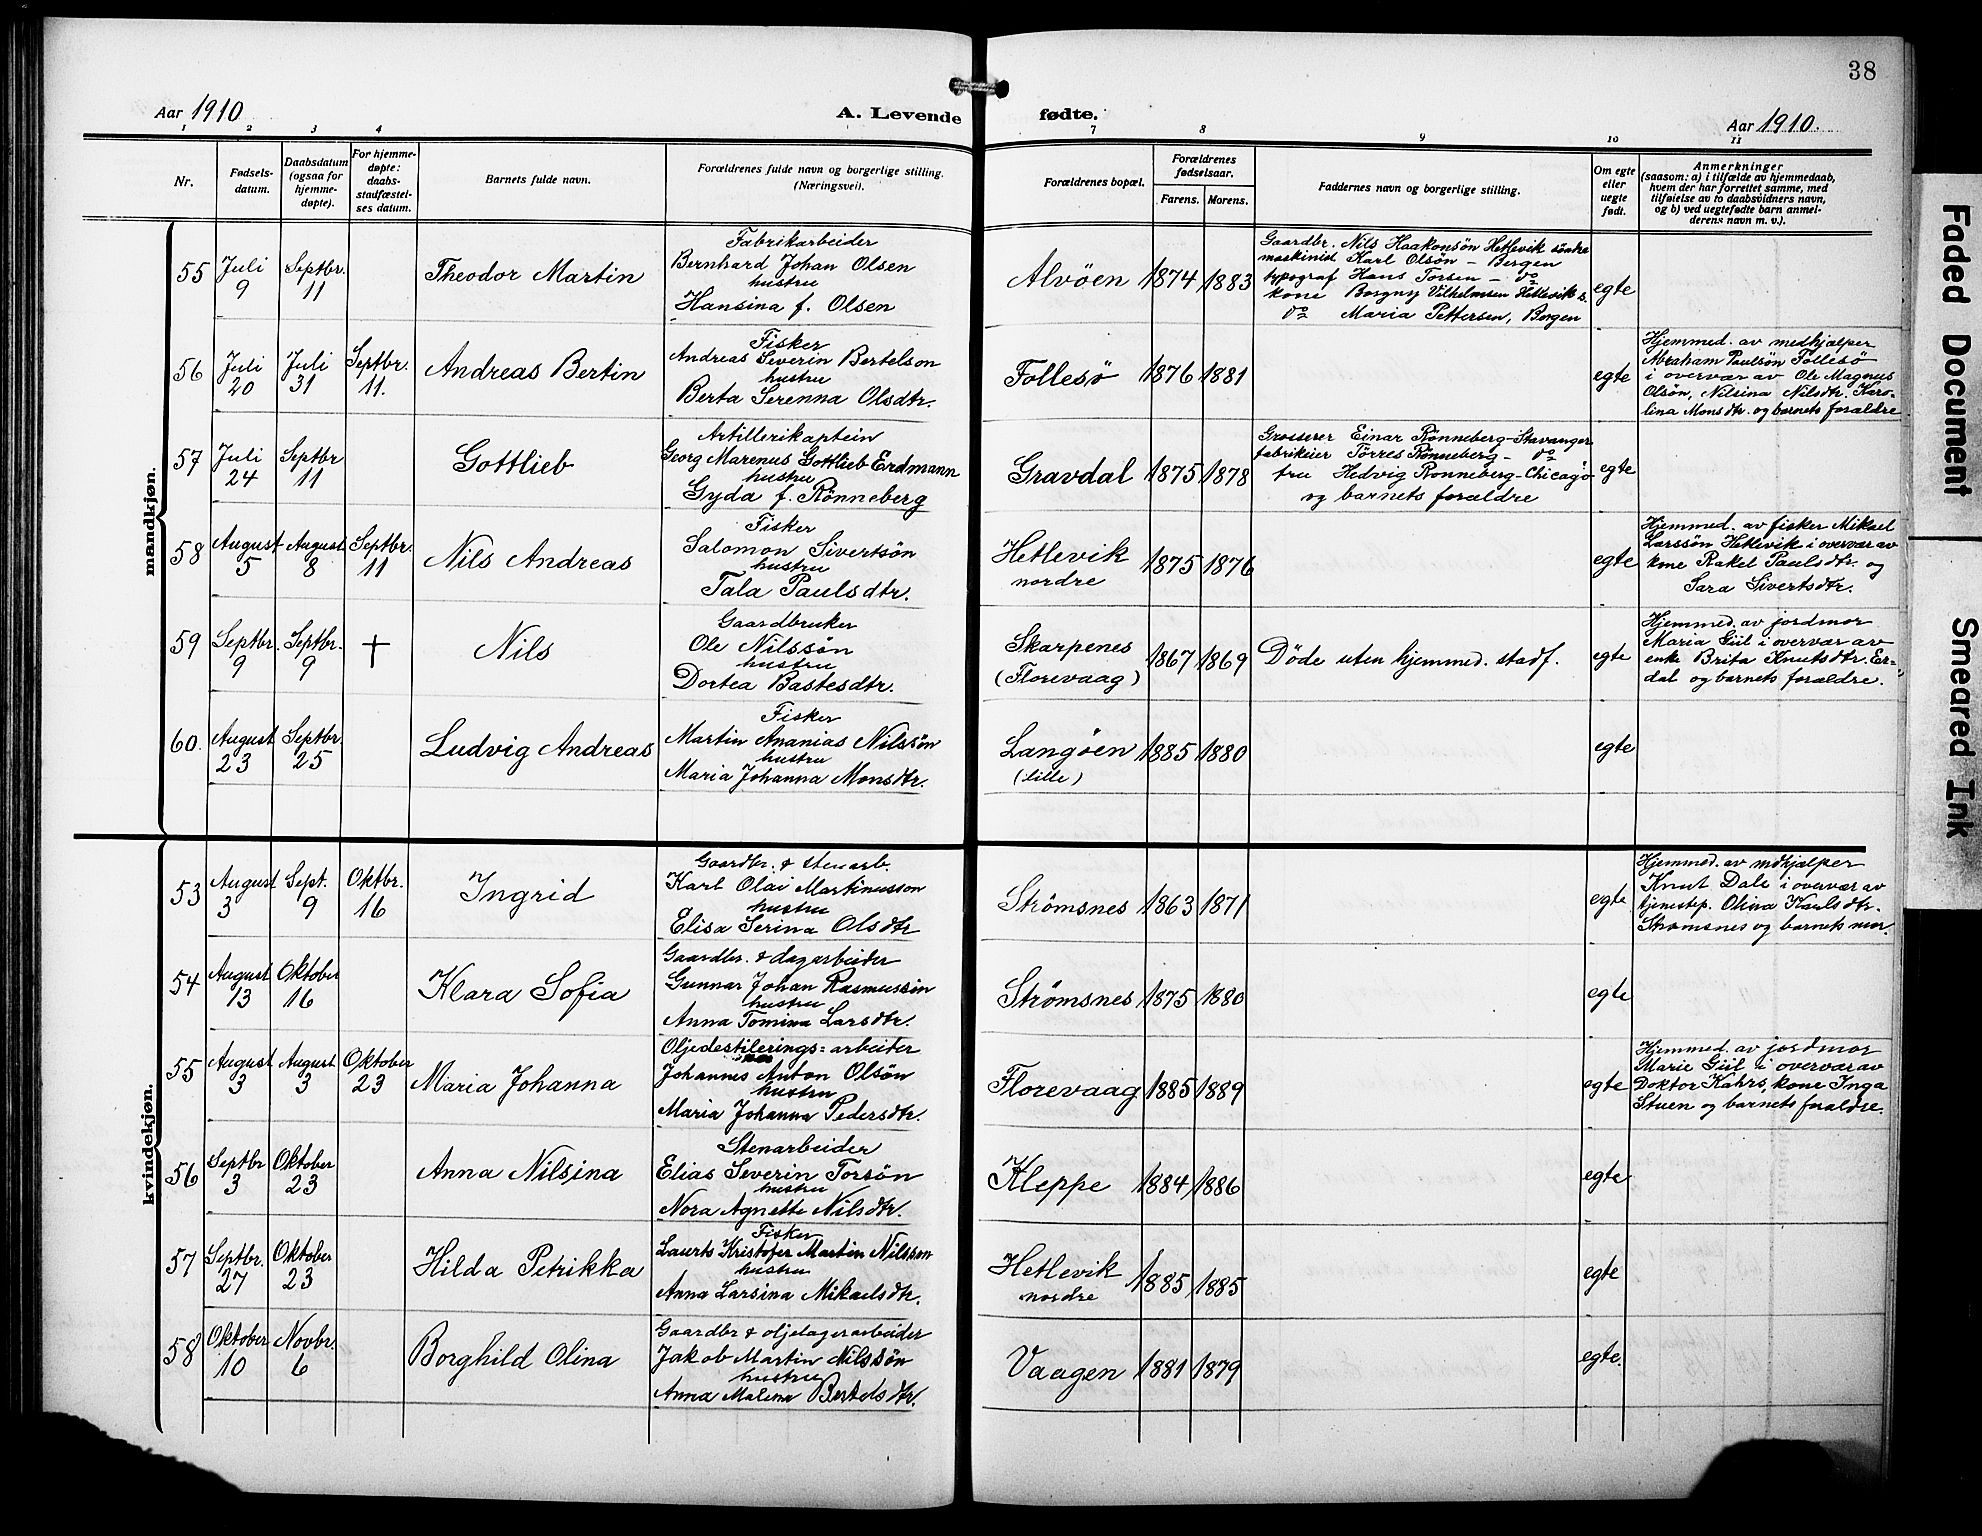 38
Aar 1910
A. Levende fødte.
Aar 1910.
1 2 3 4 7 8 9 10 11
Nr.
Fødsels-
datum.
Daabsdatum
(ogsaa for
hjemme-
døpte).
For hjemme-
døpte:
daabs-
stadfæstel-
ses datum.
Barnets fulde navn.
Forældrenes fulde navn og borgerlige stilling.
(Næringsvei).
Forældrenes bopæl.
Forældrenes
fødselsaar.
Farens. Morens.
Faddernes navn og borgerlige stilling.
Om egte
eller
uegte
født.
Anmerkninger
(saasom: a) i tilfælde av hjemmedaab,
hvem der har forrettet samme, med
tilføielse av to daabsvidners navn,
og b) ved uegtefødte barn anmel-
derens navn m. v.).
mandkjøn.
55
Juli
9
Septbr.
11
Theodor Martin
Fabrikarbeider
Bernhard Johan Olsen
hustru
Hansina f. Olsen
Alvøen
1874
1883
Gaardbr. Nils Haakonsøn Hetlevik søndre
maskinist Karl Olsøn - Bergen
typograf Hans Torsen - do
kone Borgny Vilhelmsen Hetlevik s.
do Maria Pettersen, Bergen
egte
56
Juli
20
Juli
31
Septbr.
11.
Andreas Bertin
Fisker
Andreas Severin Bertelson
hustru
Berta Serenna Olsdtr.
Follesø
1876
1881
egte
Hjemmed. av medhjælper
Abraham Paulsøn Follesø
i overvær av Ole Magnus
Olsøn, Nilsina Nilsdtr. Karo-
lina Monsdtr. og barnets forældre
57
Juli
24
Septbr
11
Gottlieb
Artillerikaptein
Georg Marenus Gottlieb Erdmann
hustru
Gyda f. Rønneberg
Gravdal
1875
1878
Grosserer Einar Rønneberg-Stavanger
fabrikeier Törres Rønneberg - do
fru Hedvig Rønneberg-Chicago
og barnets forældre
egte
58
August
5
August
8
Septbr.
11
Nils Andreas
Fisker
Salomon Sivertsøn
hustru
Tala Paulsdtr.
Hetlevik
nordre
1875
1876
egte
Hjemmed. av fisker Mikael
Larssøn Hetlevik i overvær av
kone Rakel Paulsdtr. og
Sara Sivertsdtr.
59
Septbr.
9
Septbr.
9
+
Nils
Gaardbruker
Ole Nilssøn
hustru
Dortea Bastesdtr.
Skarpenes
(Florevaag)
1867
1869
Døde uten hjemmed. stadf.
egte
Hjemmed. av jordmor
Maria Giil i overvær av
enke Brita Knutsdtr. Er-
dal og barnets forældre.
60.
August
23
Septbr.
25
Ludvig Andreas
Fisker
Martin Ananias Nilssøn
hustru
Maria Johanna Monsdtr.
Langøen
(lille)
1885
1880
egte
kvindekjøn.
53
August
3
Sept.
9
Oktbr.
16
Ingrid
Gaardbr. & stenarb.
Karl Olai Martinusson
hustru
Elisa Serina Olsdtr
Strømsnes
1863
1871
egte
Hjemmed. av mdhjælper
Knut Dale i overvær av
tjenestep. Olina Paulsdtr.
Strømsnes og barnets mor.
54
August
13
Oktober
16
Klara Sofia
Gaardbr. & dagarbeider
Gunnar Johan Rasmussøn
hustru
Anna Tomina Larsdtr.
Strømsnes
1875
1880
egte
55
August
3
August
3
Oktober
23
Maria Johanna
Oljedestilerings=arbeider
Johannes Anton Olsøn
hustru
Maria Johanna Pedersdtr.
Florevaag
1885
1889
egte
Hjemmed. av jordmor
Marie Giil i overvær av
Doktor Kahrs, kone Inga
Stuen og barnets forældre.
56
Septbr
3
Oktober
23
Anna Nilsina
Stenarbeider
Elias Severin Torsøn
hustru
Nora Agnette Nilsdtr.
Kleppe
1884
1886
egte
57
Septbr.
27
Oktober
23
Hilda Petrikka
Fisker
Laurts Kristofer Martin Nilsson
hustru
Anna Larsina Mikaelsdtr.
Hetlevik
nordre
1885
1885
egte
58
Oktober
10
Novbr.
6
Borghild Olina
Gaardbr & oljelagerarbeider
Jakob Martin Nilssøn
hustru
Anna Malena Bertelsdtr.
Vaagen
1881
1879
egte.
Faded Document
Smeared Ink